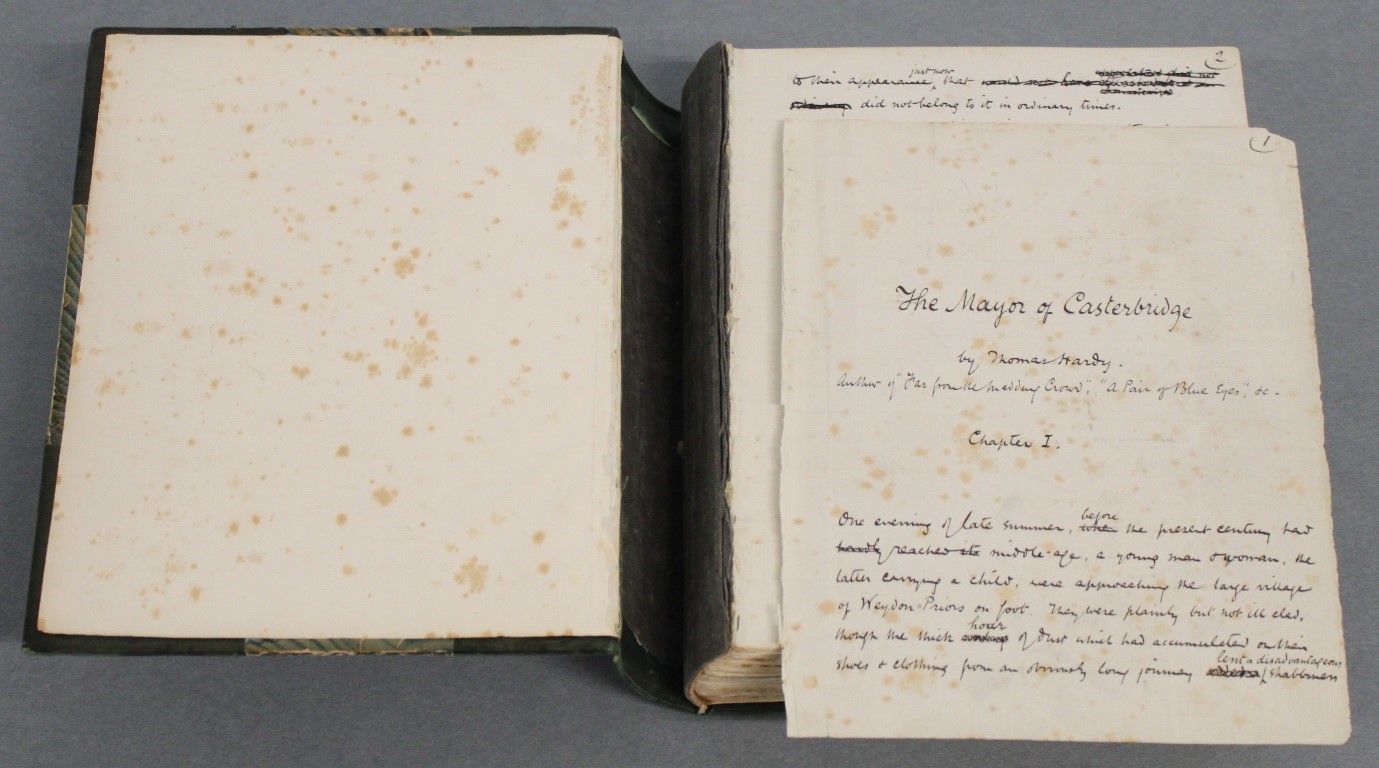 2
just now
to their appearance, that would not have
did not belong to it in ordinary times.
1
The Mayor of Casterbridge
by Thomas Hardy.
Author of "Far from the Madding Crowd", "A Pair of Blue Eyes", &c.
Chapter I.
before
One evening of late summer, when the present century had
hardly reached its middle-age, a young man & woman, the
latter carrying a child, were approaching the large village
of Weydon-Priors on foot. They were plainly but not ill clad,
hoar
though the thick of dust which had accumulated on their
lent a disadvantageous
shoes & clothing from an obviously long journey shabbiness